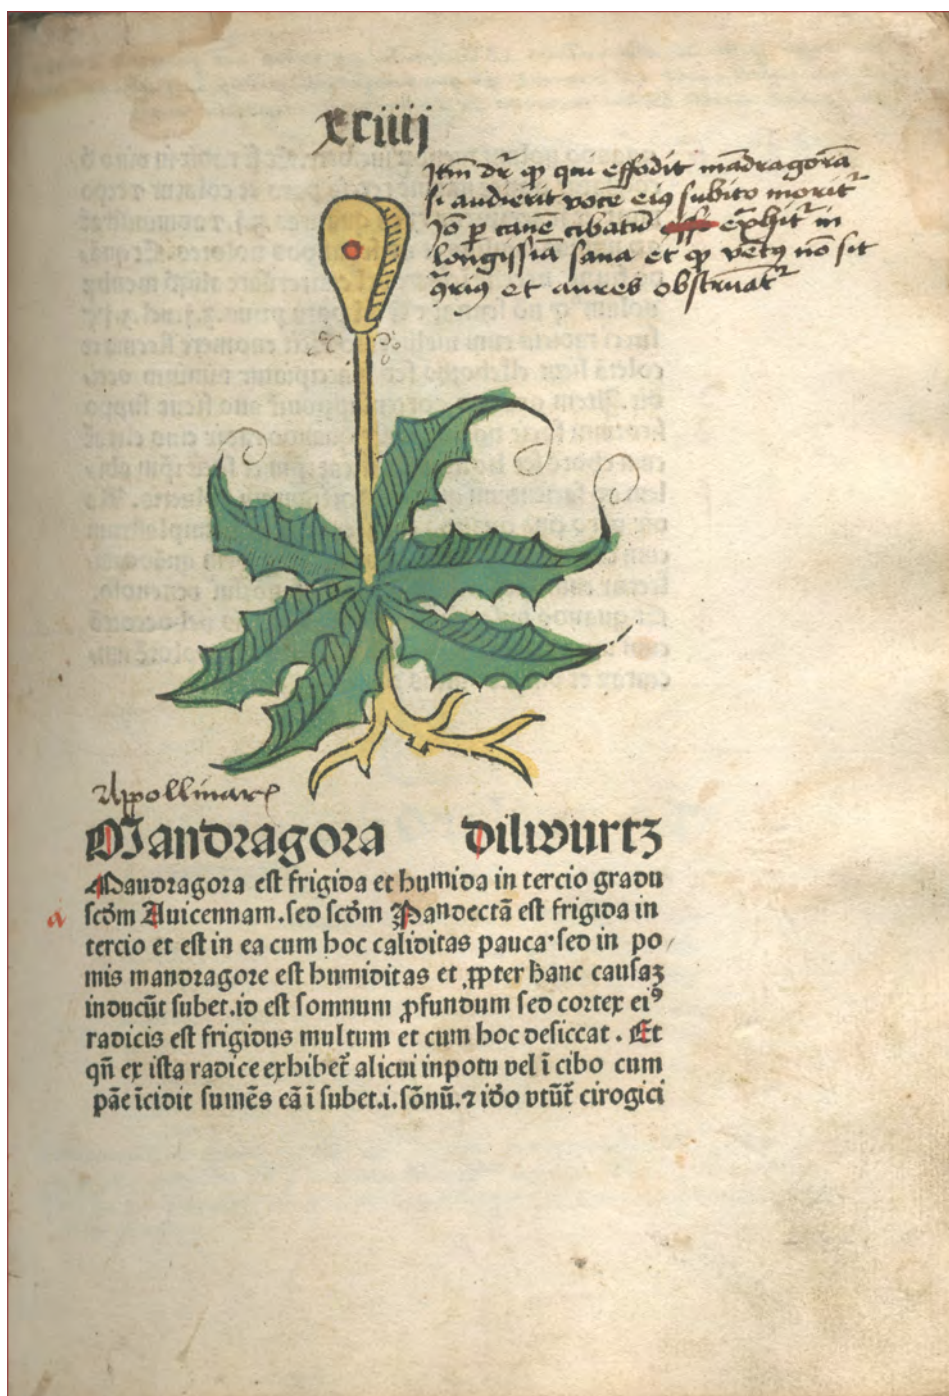 xciiij
Itm̄ dr̄ ꝙ qui effodit mādragorā
si audierit vocē eiꝰ subito moritᷣ
Iō ꝑ canē cibatū exhitᷣ in
longissiā et ꝙ vētꝰ nō sit
et aures obstruātᷣ
Appollinarꝭ
Mandragora dilwurtz
Mandragora est frigida et humida in tercio gradu
a scd̄m Auicennam. sed scd̄m Pandectā est frigida in
tercio et est in ea cum hoc caliditas pauca· sed in po/
mis mandragore est humiditas et ꝓpter hanc causaꝫ
inducūt subet. id est somnum ꝓfundum sed cortex eiꝰ
radicis est frigidus multum et cum hoc desiccat. Et
qn̄ ex ista radice exhibet̄ alicui inpotu vel ī cibo cum
pāe īcidit sumēs eā ī subet. i. sōnū. ⁊ idō vtūt̄ cirogici